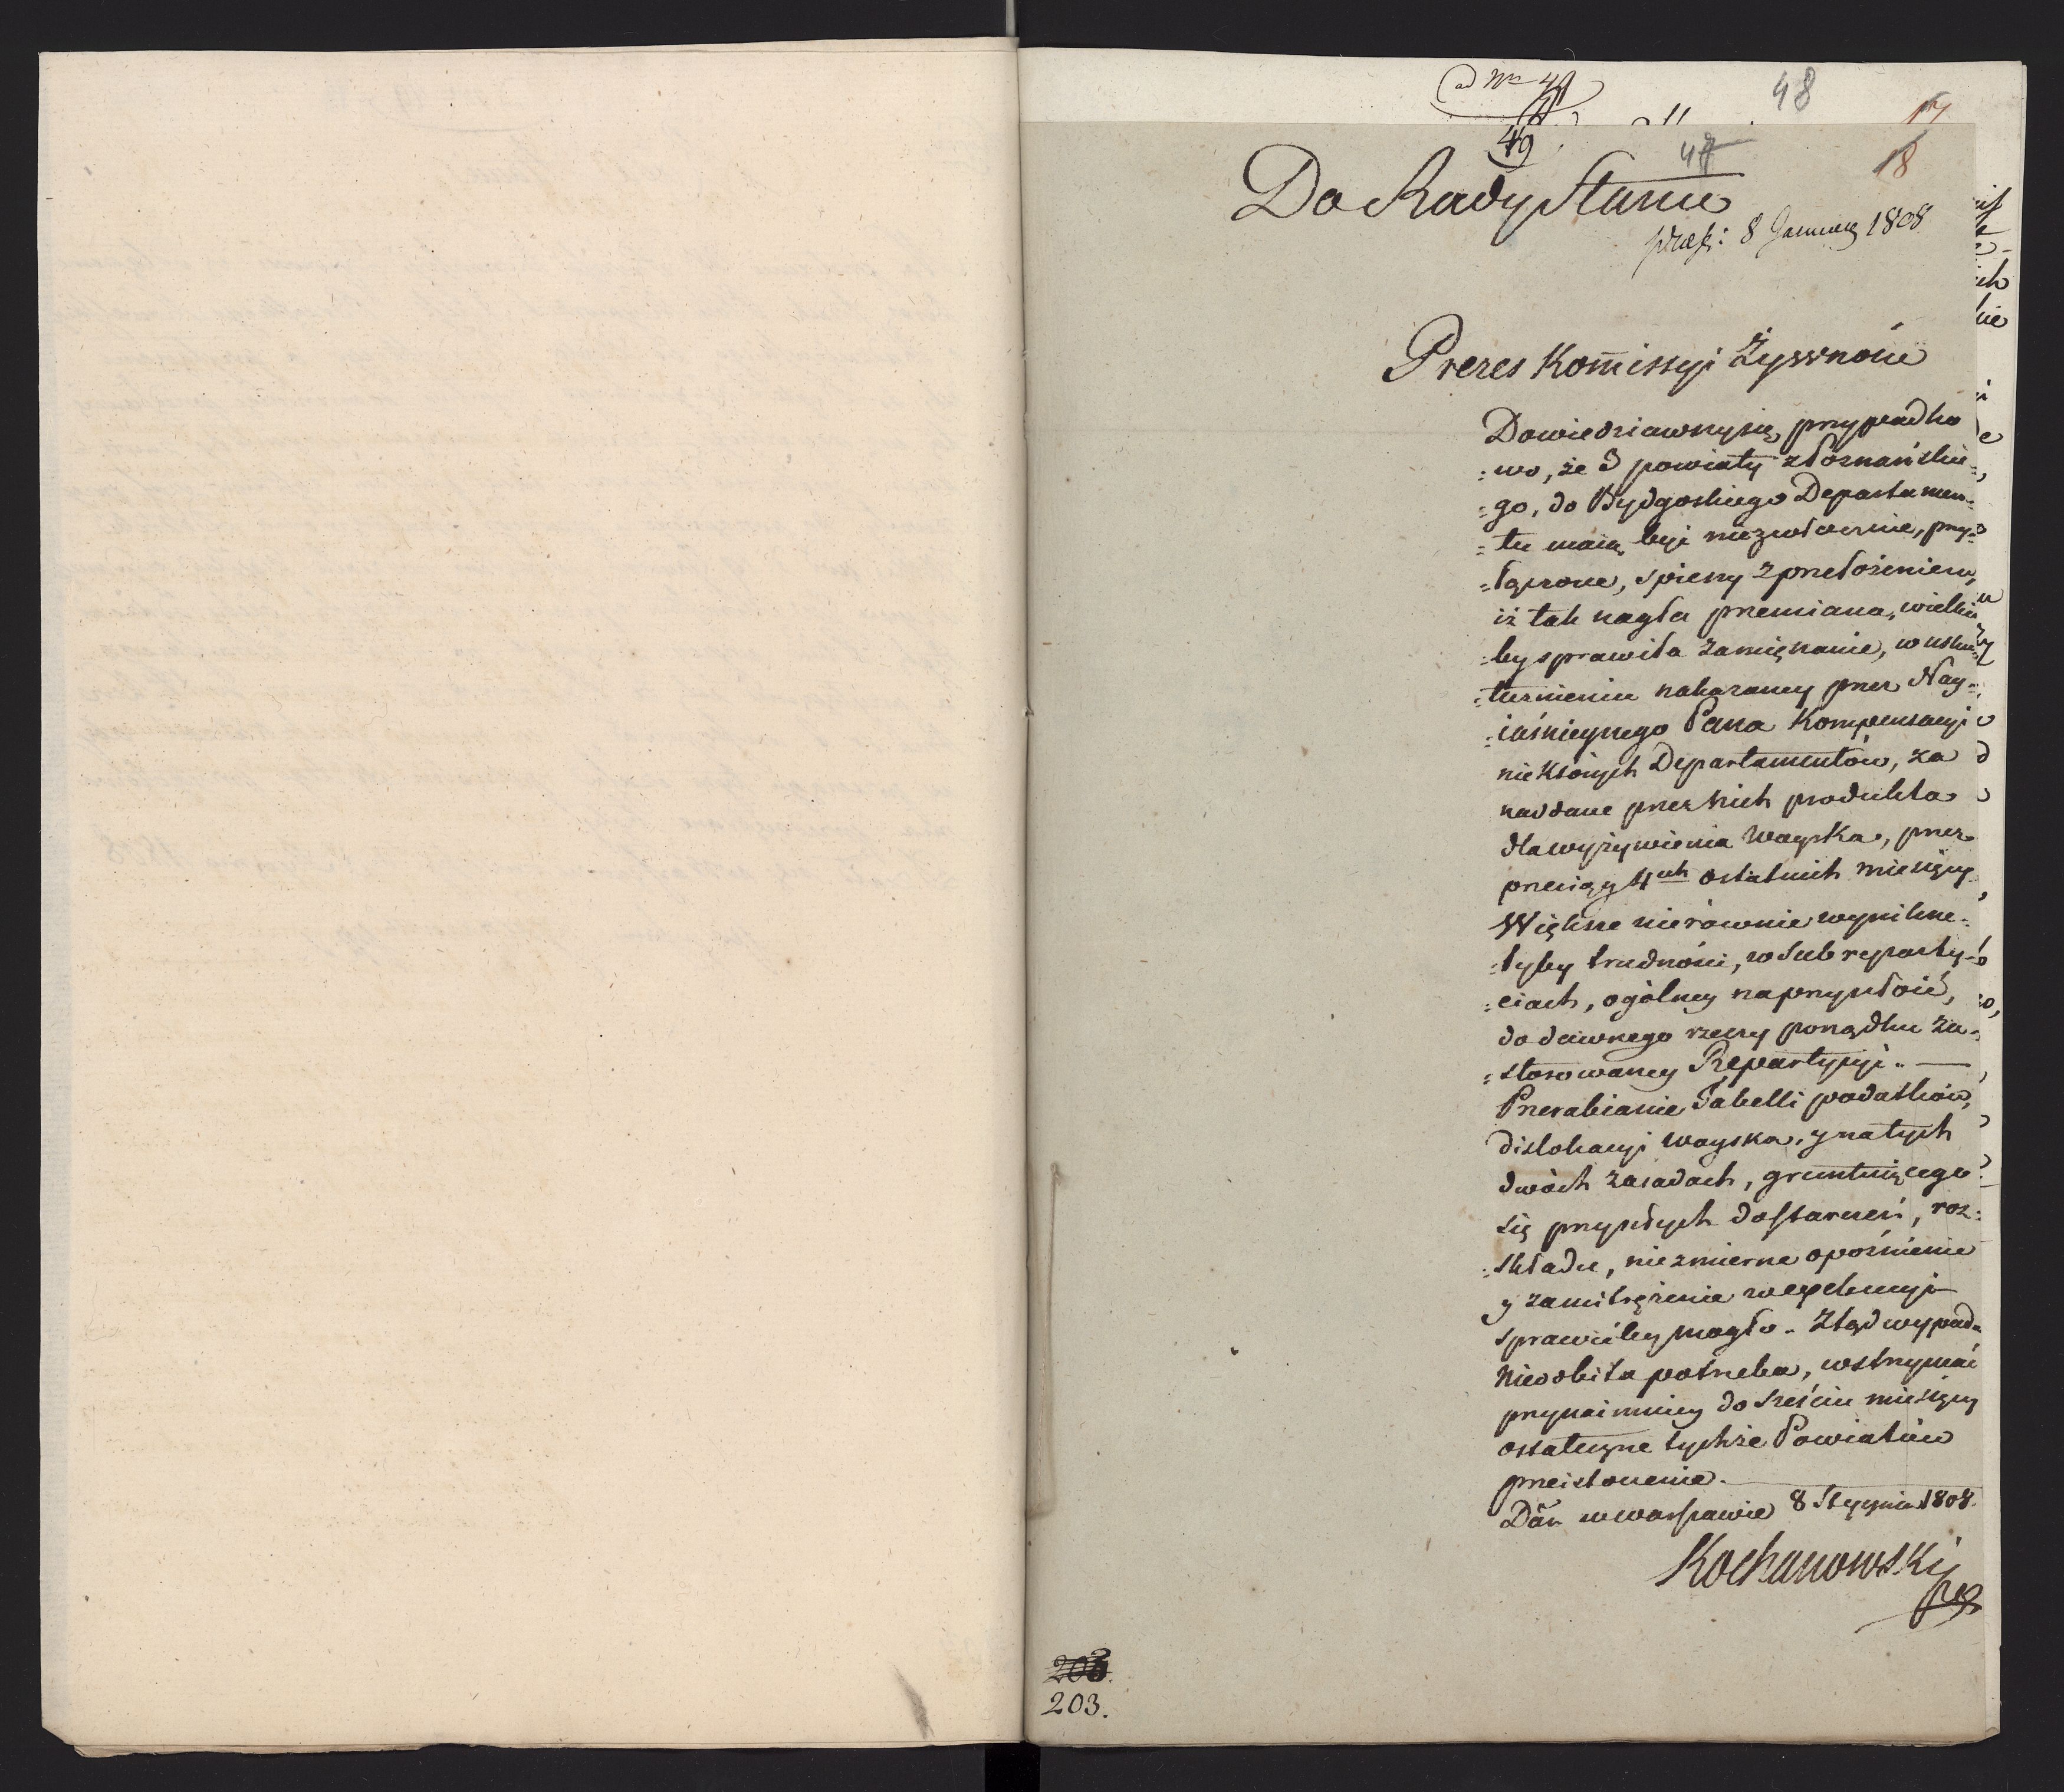 ad Nr 49
48
17
49
47
18
Do Rady Stanu
præs: 8 January 1808
Prezes Kom̄issyi Żywności
Dowiedziawszy się przypadko
=wo, że 3 powiaty z Poznańskie=
=go, do Bydgoskiego Departamen=
=tu maią byź niezwłocznie, przy=
=łączone, spieszy z przełożeniem,
iż tak nagła przemiana, wielkie
=by sprawiła zamięszanie, w usku=
=tecznieniu nakazaney przez Nay=
=iaśnieyszego Pana Kompensacyi
niektórych Departamentów, za
naddane przez nich produkta
dla wyżywienia Woyska, przez
przeciąg 4ech ostatnich miesięcy.
Większe nierównie wynikne=
=łyby trudności, w subreparty=
=ciach, ogólney na przyszłość,
do dawnego rzeczy porządku za=
=stosowaney Repartycyi.. —
Przerabianie Tabelli podatków,
dislokacyi Woyska, y na tych
dwóch zasadach, gruntuiącego
się przyszłych dostarczeń, roz=
=kładu, niezmierne opoźnienie
y zamitrężenie w expedycyi
sprawićby mogło. Ztąd wypada
nieodbita potrzeba, wstrzymać
przynaimniey do sześciu miesięcy
ostateczne tychże Powiatów
przeistoczenie.
Dān w Warszawie 8 Stycznia 1808.
Kochanowski
203.